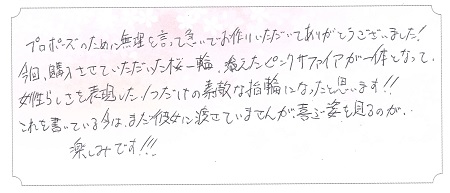 プロポーズのために無理を言って急いでお作りいただいてありがとうございました!
今回、購入させていただいた桜一輪、添えたピンクサファイアが一体となって、
女性らしさを表現した1つだけの素敵な指輪になったと思います!!
これを書いている今は、まだ彼女に渡せていませんが、喜ぶ姿を見るのが、
楽しみです!!!